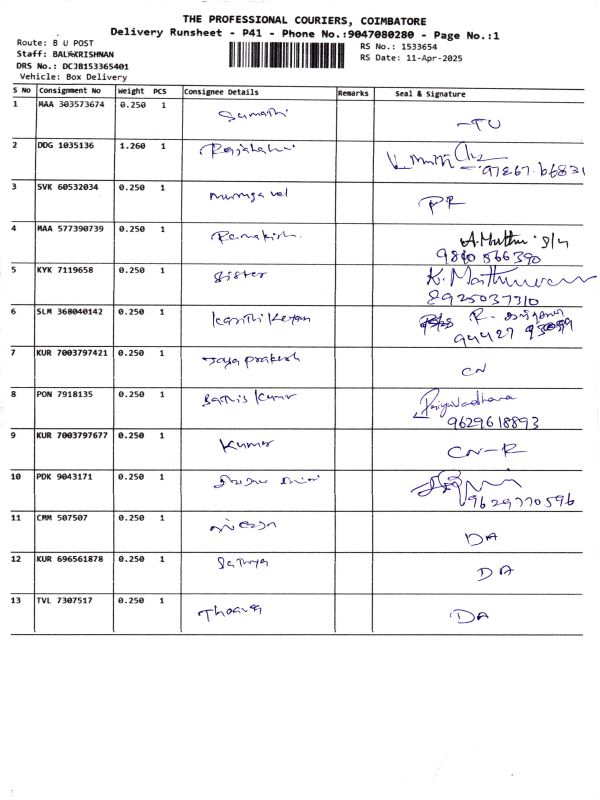 THE PROFESSIONAL COURIERS, COIMBATORE
Delivery Runsheet - P41 - Phone No.:9047080280 - Page No.:1
Route: B U POST
Staff: BALAKRISHNAN
DRS No.: DCJB153365401
Vehicle: Box Delivery
RS No.: 1533654
RS Date: 11-Apr-2025
S No Consignment No Weight PCS Consignee Details Remarks Seal & Signature
1 MAA 303573674 0.250 1 Sumathi -TU
2 DDG 1035136 1.260 1
3 SVK 60532034 0.250 1 murugavel PR
4 MAA 577390739 0.250 1 Ramakish. A.Muthu
9840566390
5 KYK 7119658 0.250 1 Sister K.
8925037310
6 SLM 368040142 0.250 1 R.
94427
7 KUR 7003797421 0.250 1 Jayaprakesh CN
8 PON 7918135 0.250 1 Sathis kumar Priyavadhana
9629618893
9 KUR 7003797677 0.250 1 Kumar CN-R
10 PDK 9043171 0.250 1
9629770596
11 CMM 507507 0.250 1 DA
12 KUR 696561878 0.250 1 Sathya DA
13 TVL 7307517 0.250 1 DA